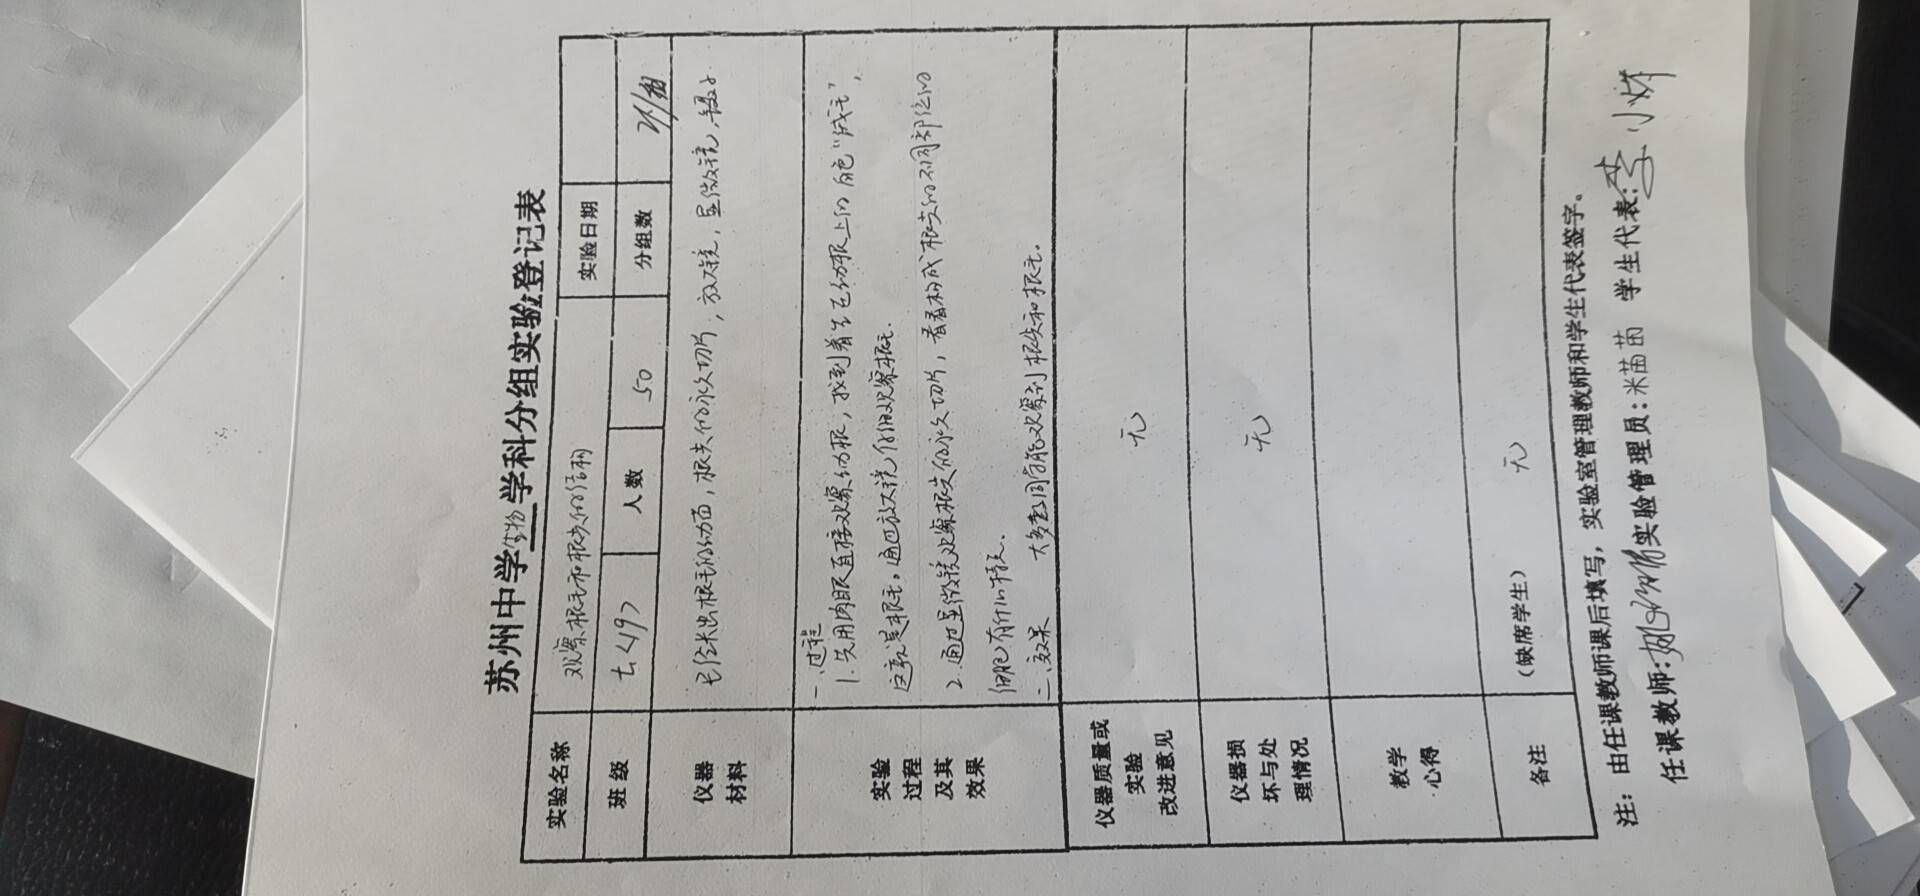 苏州中学生物学科分组实验登记表
实验名称 观察根毛和根尖的结构 实验日期
班级 七<19> 人数 50 分组数
仪器材料 已经长出根毛的幼苗，根尖的永久切片，放大镜，显微镜，镊子
实验过程及其效果
一、过程
1. 先用肉眼直接观察幼根，找到着生在幼根上的白色"绒毛"，
这就是根毛。通过放大镜仔细观察根毛.
2. 通过显微镜观察根尖的永久切片，看看构成根尖的不同部位的
细胞有什么特点.
二、效果 大多数同学能观察到根尖和根毛.
仪器质量或实验改进意见 无
仪器损坏与处理情况 无
教学心得
备注 （缺席学生） 无
注：由任课教师课后填写，实验室管理教师和学生代表签字。
任课教师: 实验管理员:米苗苗 学生代表:李小烨